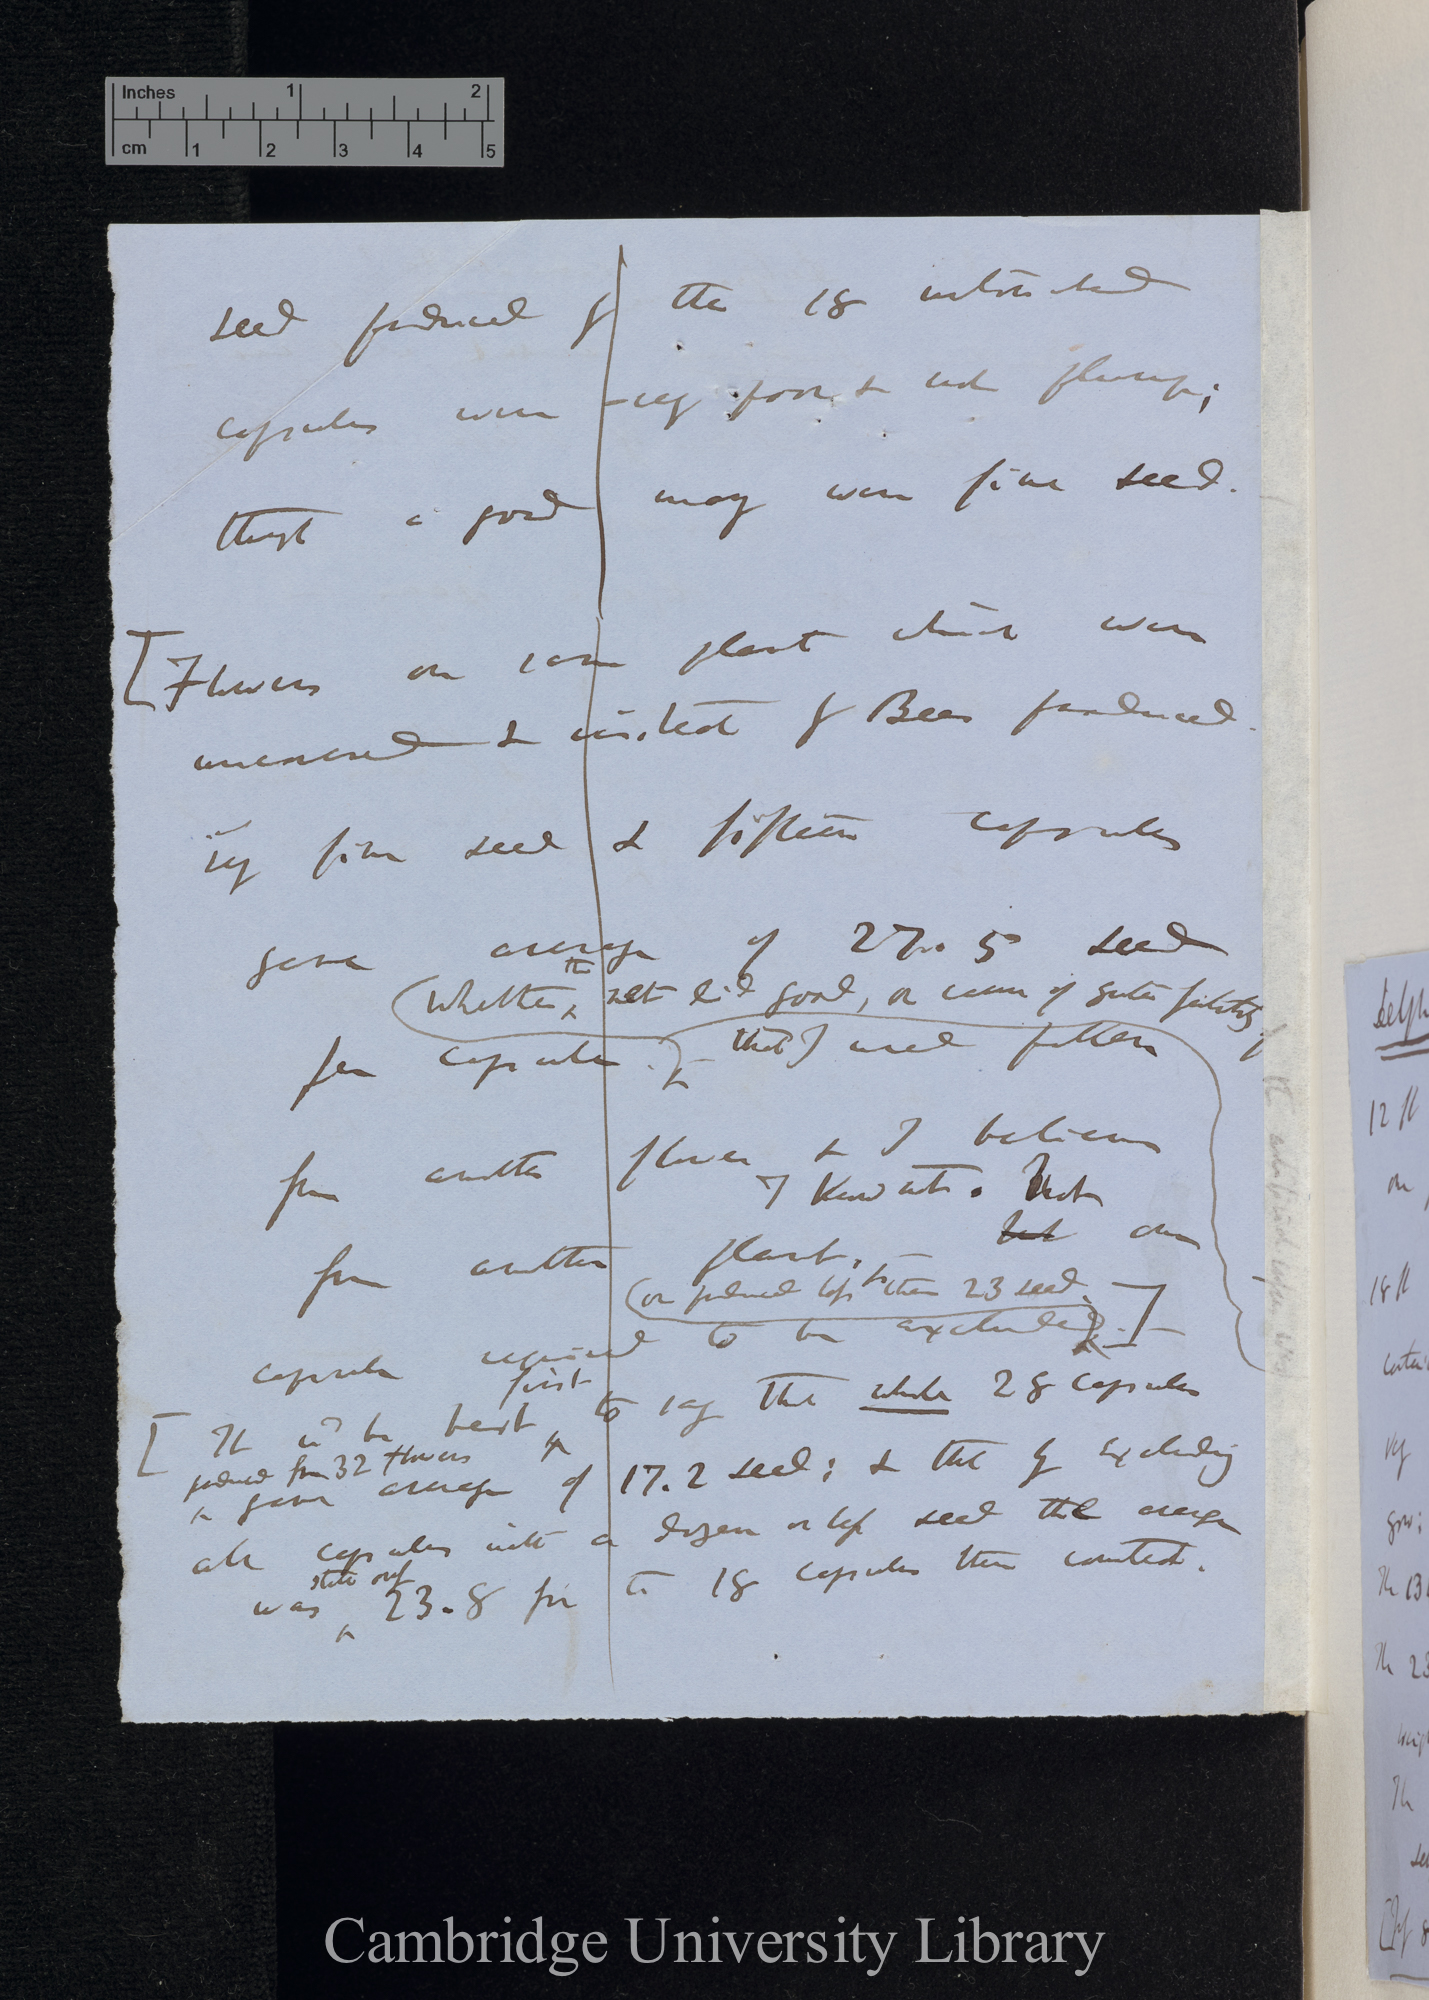 Inches 1 2
cm 1 2 3 4 5
seed produced by the 18 selected
capsules were very poor & not plump;
though a good many were fine seed.
[Flowers on same plant which were
uncovered & visited by Bees produced
very fine seed & fifteen capsules
gave average of 27.5 seed
(Whether the net did good, or cause of greater fertility,
per capsule. that I used pollen
from another flower & I believe
I know not. that
from another plant. — but one
(one produced less than 23 seed.
capsule required to be excluded.—]
first
[It wd be best to say that whole 28 capsules
produced from 32 flowers
gave average of 17.2 seed; & that by excluding
all capsules with a dozen or less seed the average
state only
was 23.8 for the 18 capsules then counted.
12 fl
on
18 fl
The
Cambridge University Library